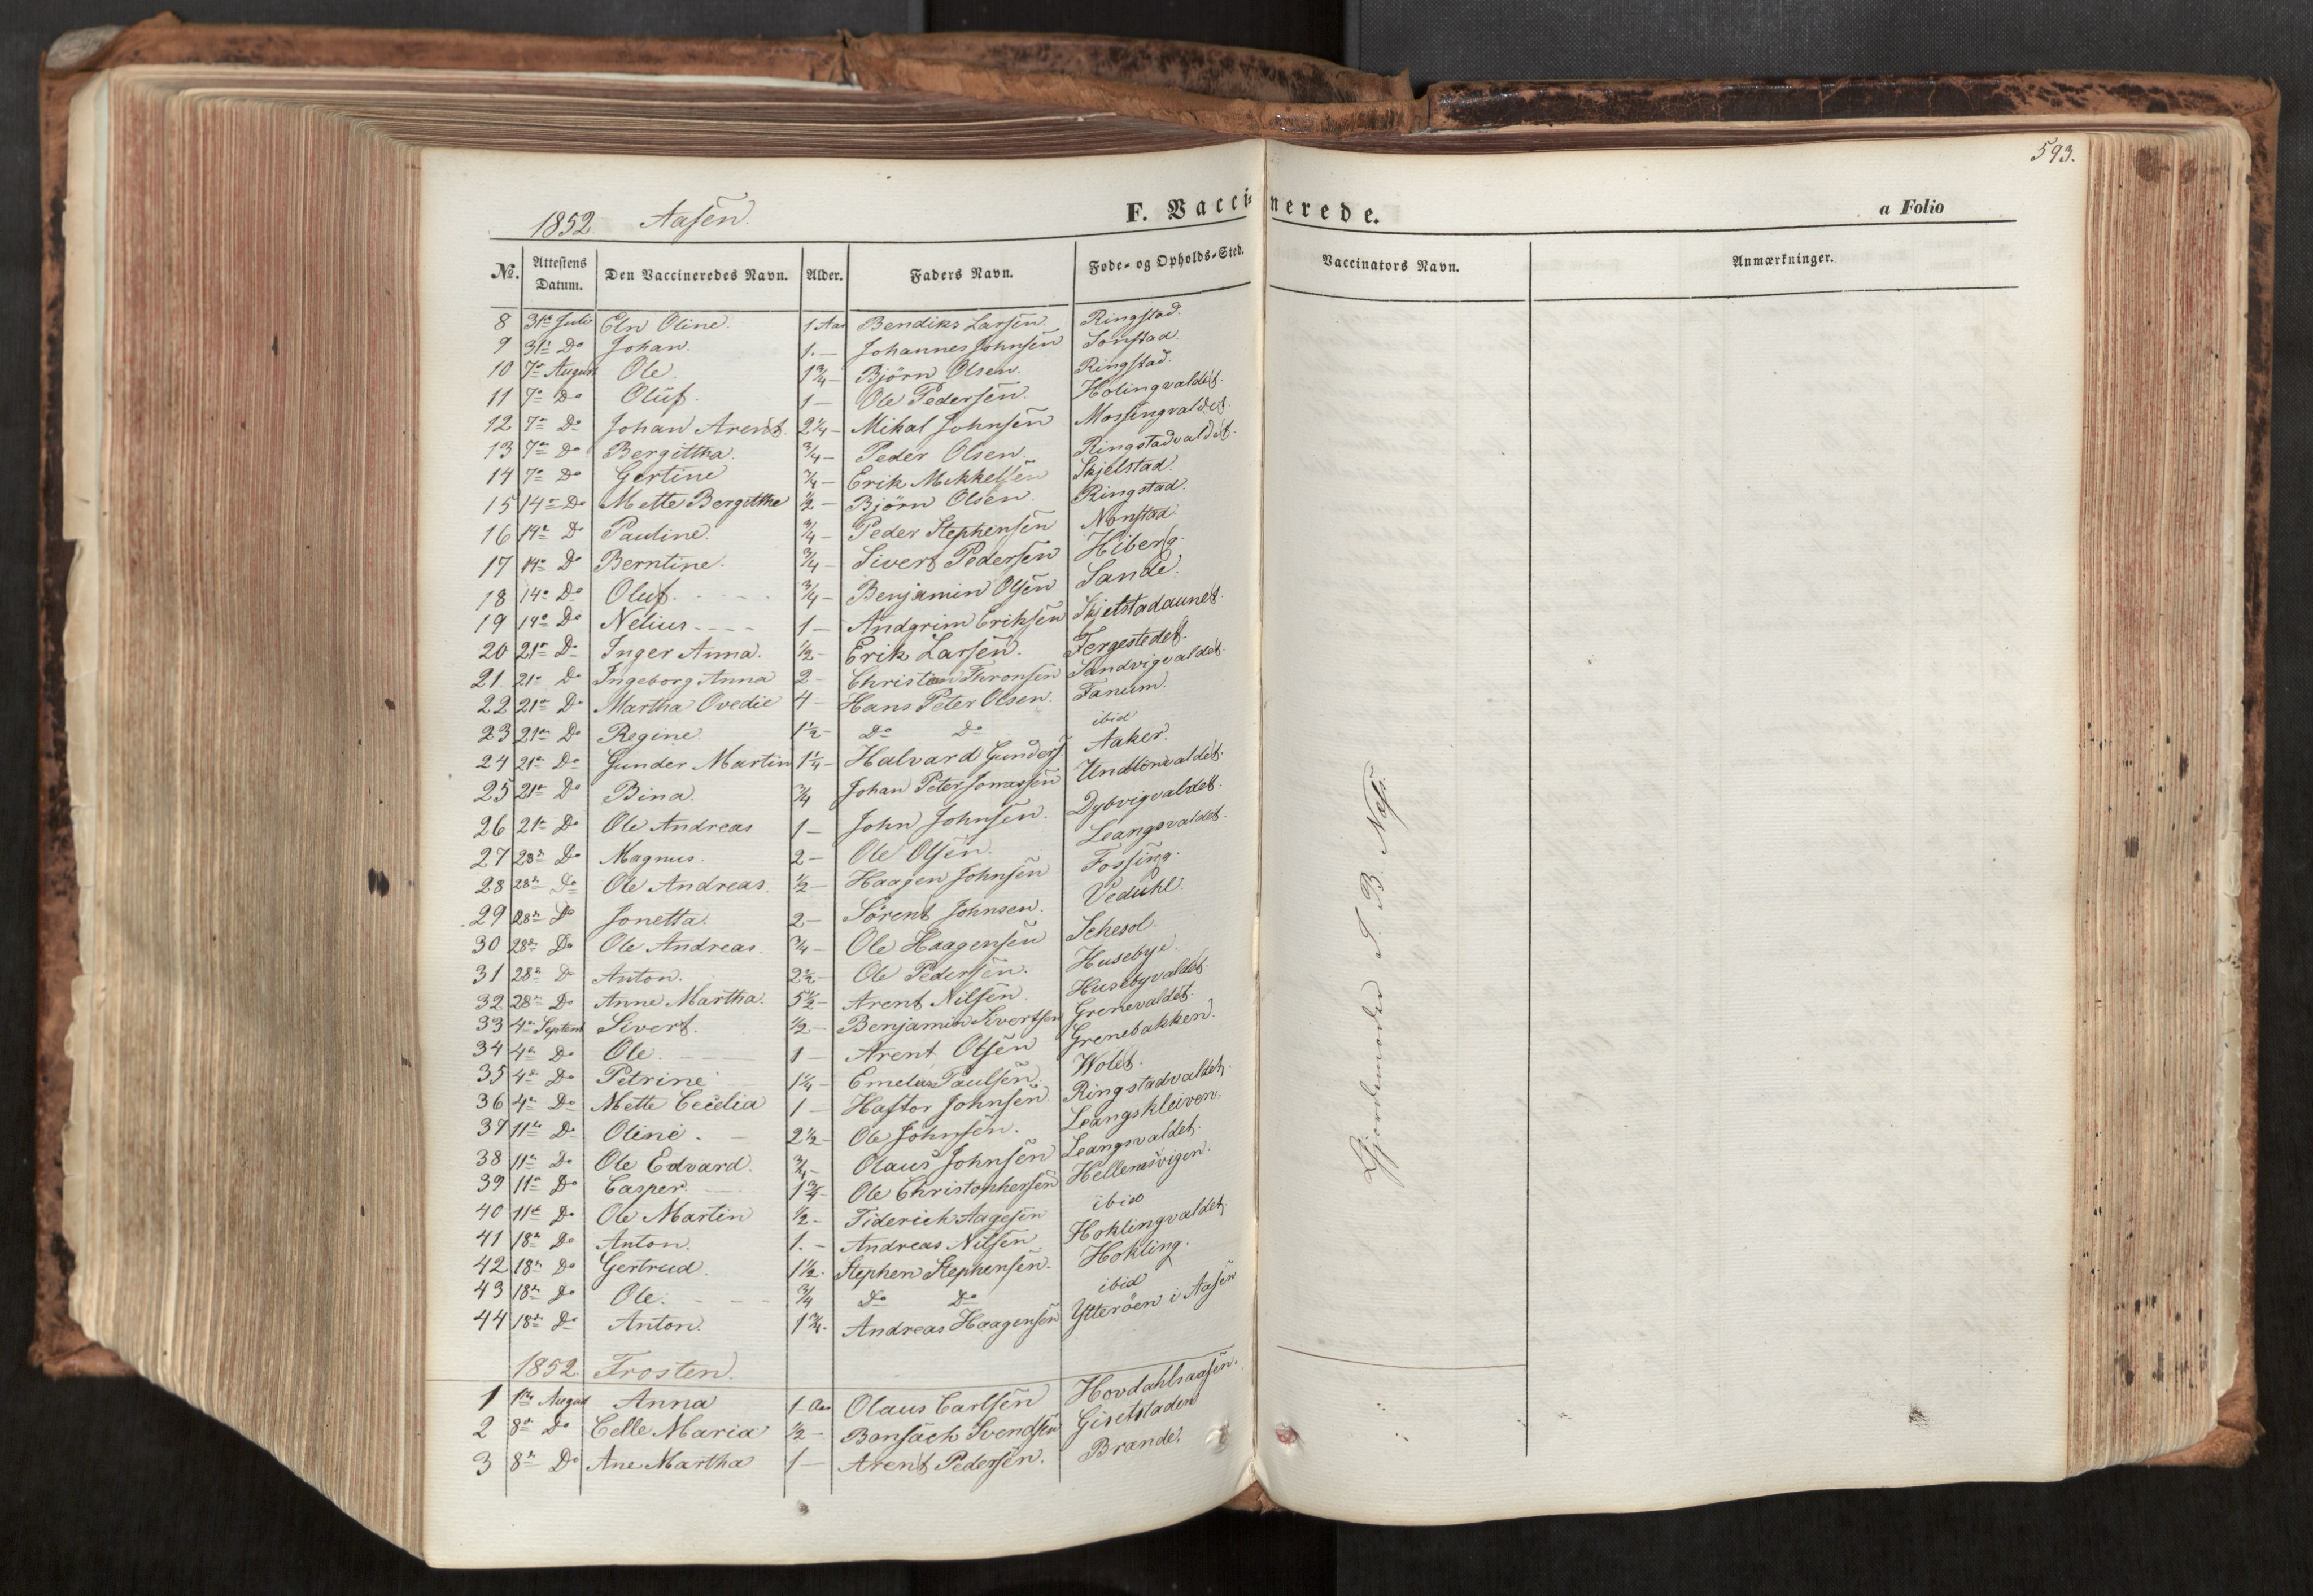 593.
1852 Aasen.
F. Vaccinerede.
a Folio
No. Attestens Datum. Den Vaccineredes Navn. Alder. Faders Navn. Føde- og Opholds-Sted. Vaccinators Navn. Anmærkninger.
8 31te Juli Eln Oline. 1 Aar Bendiks Larsen. Ringstad.
9 31te Do Johan. 1.— Johannes Johnsen Sonstad.
10 7de August Ole. 1 3/4— Bjørn Olsen. Ringstad.
11 7de Do Oluf. 1— Ole Pedersen. Holingvaldet.
12 7de Do Johan Arent. 2 1/4— Mikal Johnsen Mossingvaldet.
13 7de Do Bergittha. 3/4— Peder Olsen. Ringstadvaldet.
14 7de Do Gertine 3/4— Erik Mikkelsen Skjelstad.
15 14de Do Mette Bergitthe 1/2— Bjørn Olsen. Ringstad.
16 14de Do Pauline. 3/4— Peder Stephensen Nonstad.
17 14de Do Berntine. 3/4— Sivert Pedersen Hiberg.
18 14de Do Oluf. 3/4— Benjamin Olsen Sande.
19 14de Do Nelius 1— Andgrim Eriksen Skjelstadaunet.
20 21de Do Inger Anna. 1/2— Erik Larsen. Fergestedet.
21 21de Do Ingeborg Anna 2— Christian Thronsen Sandvigvaldet.
22 21de Do Martha Ovedie 4— Hans Peter Olsen. Fanum.
23 21de Do Regine. 1 1/2— Do Do ibid
24 21de Do Gunder Martin 1 1/4— Halvard Gunders. Aaker.
25 21de Do Bina. 3/4 Johan Peter Jonassen
26 21de Do Ole Andreas 1— John Johnsen. Dybvigvaldet.
27 28de Do Magnus. 2— Ole Olsen. Leangsvaldet.
28 28de Do Ole Andreas. 1/2— Haagen Johnsen Fossing.
29 28de Do Jonetta. 2— Sørent Johnsen. Veduhl.
30 28de Do Ole Andreas. 3/4— Ole Haagensen Schesol.
31 28de Do Anton. 2 1/2— Ole Pedersen. Husebye.
32 28de Do Anne Martha. 5 1/2— Arent Nilsen Husebyvaldet.
33 4de Septemb Sivert. 1/2— Benjamin Sivertsen Grenevaldet.
34 4de Do Ole. 1— Arent Olsen Grenebakken.
35 4de Do Petrine 1 1/4— Emelius Paulsen. Wolet.
36 4de Do Mette Cecelia 1— Haftor Johnsen Ringstadvaldet.
37 11te Do Oline. 2 1/2— Ole Johnsen. Leangskleiven.
38 11te Do Ole Edvard. 3/4— Olaus Johnsen Leangsvaldet.
39 11te Do Casper. 1 3/4— Ole Christophersen Hellemsvigen.
40 11te Do Ole Martin 1/2— Tiderich Aagesen ibid
41 18de Do Anton. 1.— Andreas Nilsen Hoklingvaldet.
42 18de Do Gertrud. 1 1/2. Stephen Stephensen. Hokling.
43 18de Do Ole. 3/4 Do Do ibid
44 18de Do Anton. 1 3/4. Andreas Haagensen Ytterøen i Aasen
Gjordemoder I. B. Næss.
1852. Frosten.
1 1ste August Anna 1 Aar Olaus Carlsen Hovdahlsaasen.
2 8de Do Celle Maria 1/2— Bonsach Svendsen Gisetstaden
3 8de Do Ane Martha 1— Arent Pedersen. Brande.